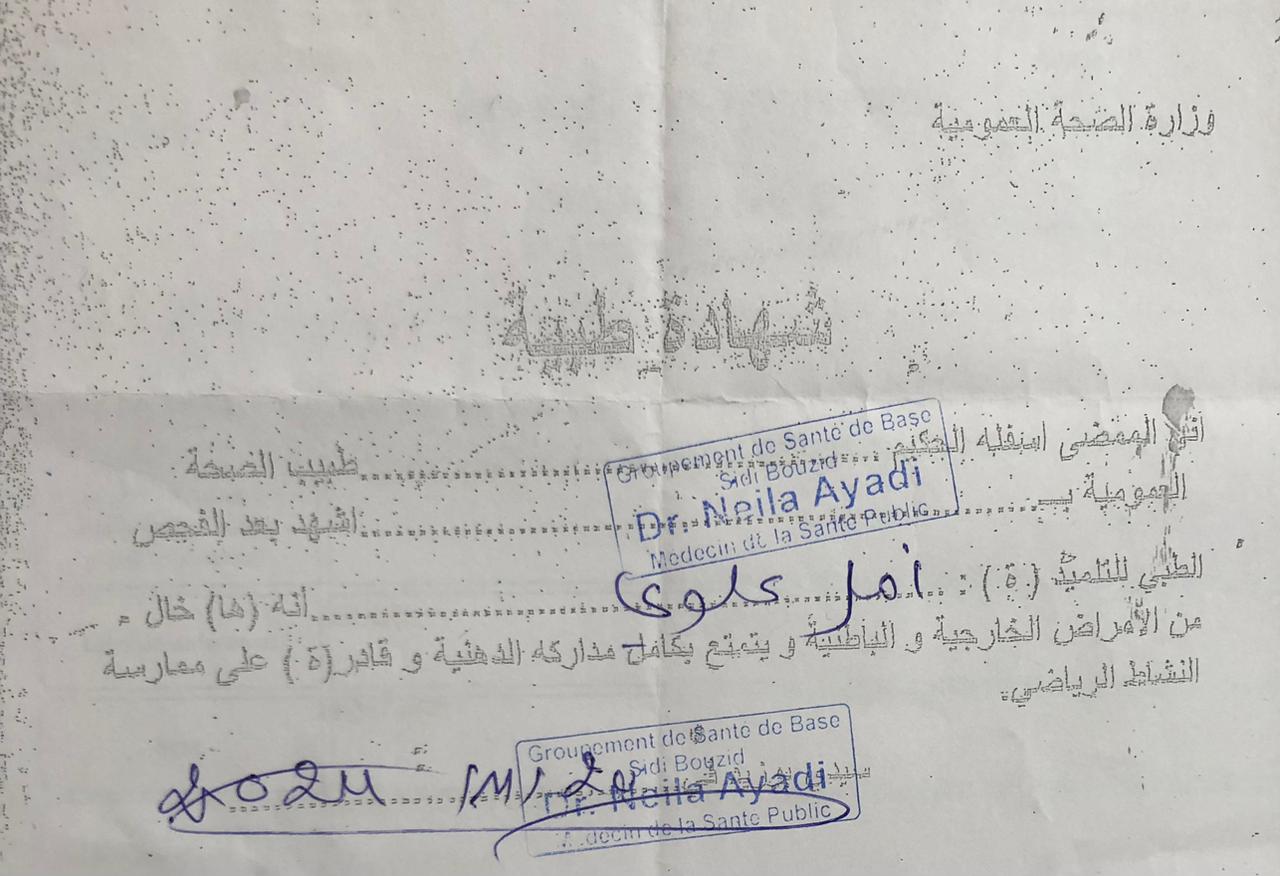 وزارة الصحة العمومية
شهادة طبية
اني الممضي اسفله الحكيم ........ طبيب الصحة
Groupement de Santé de Base
Sidi Bouzid
Dr. Neila Ayadi
Médecin de la Santé Public
العمومية بـ ........ اشهد بعد الفحص
الطبي للتلميذ (ة) : أمل علوي ........ أنه (ها) خال
من الأمراض الخارجية و الباطنية و يتمتع بكامل مداركه الذهنية و قادر (ة) على ممارسة
النشاط الرياضي.
Groupement de Santé de Base
Sidi Bouzid
Dr. Neila Ayadi
Médecin de la Santé Public